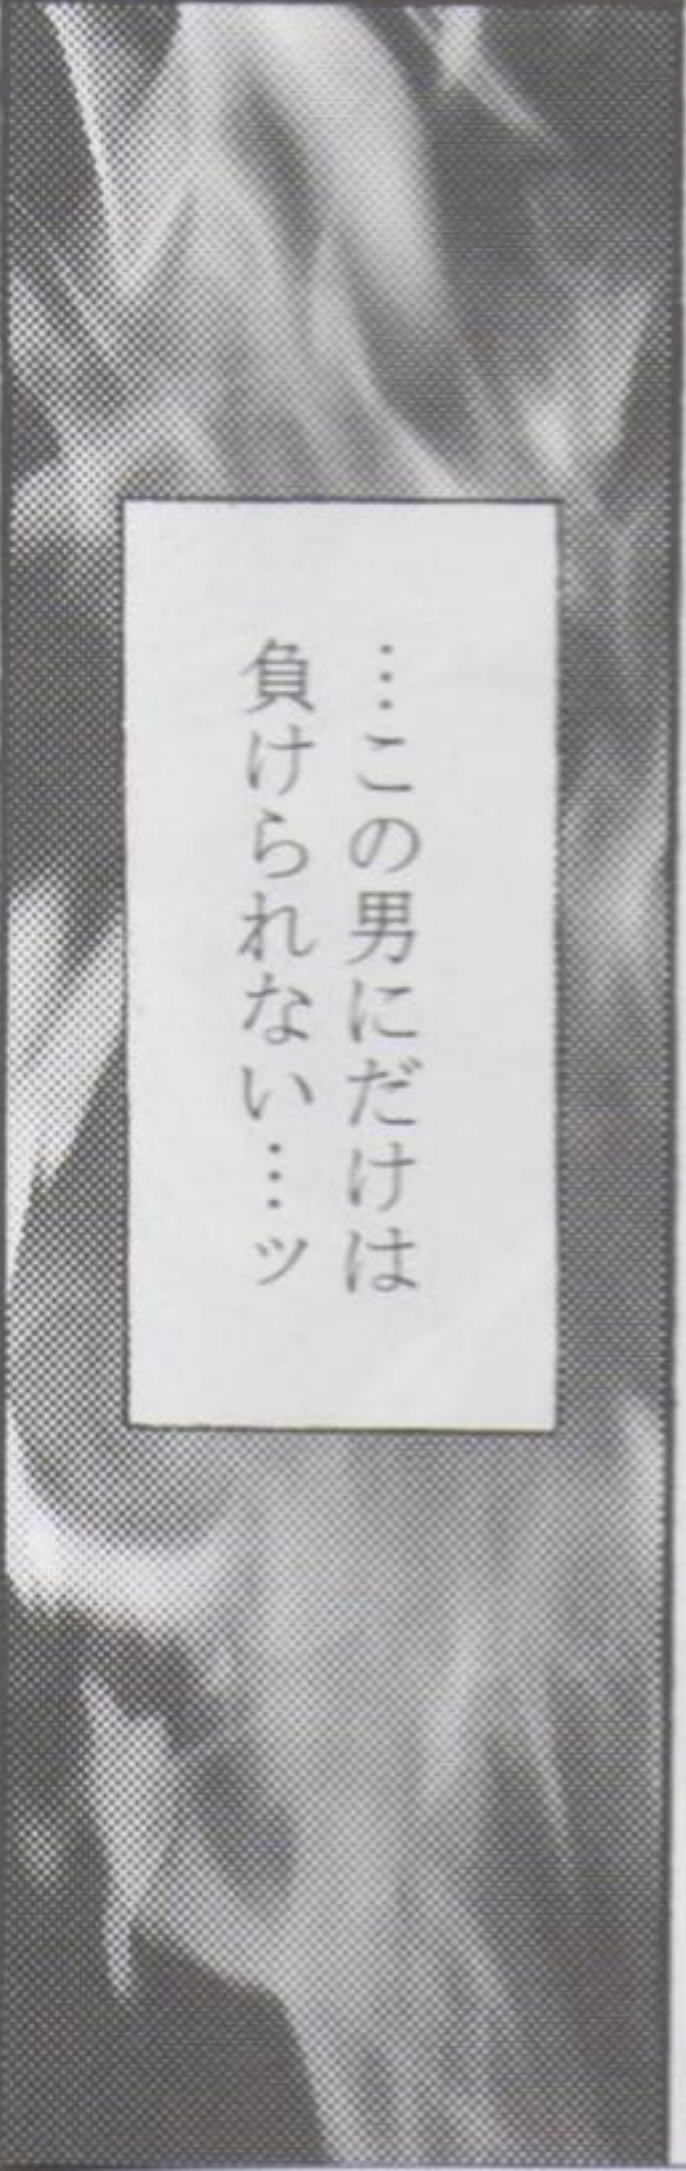 …この男にだけは
負けられない…ッ